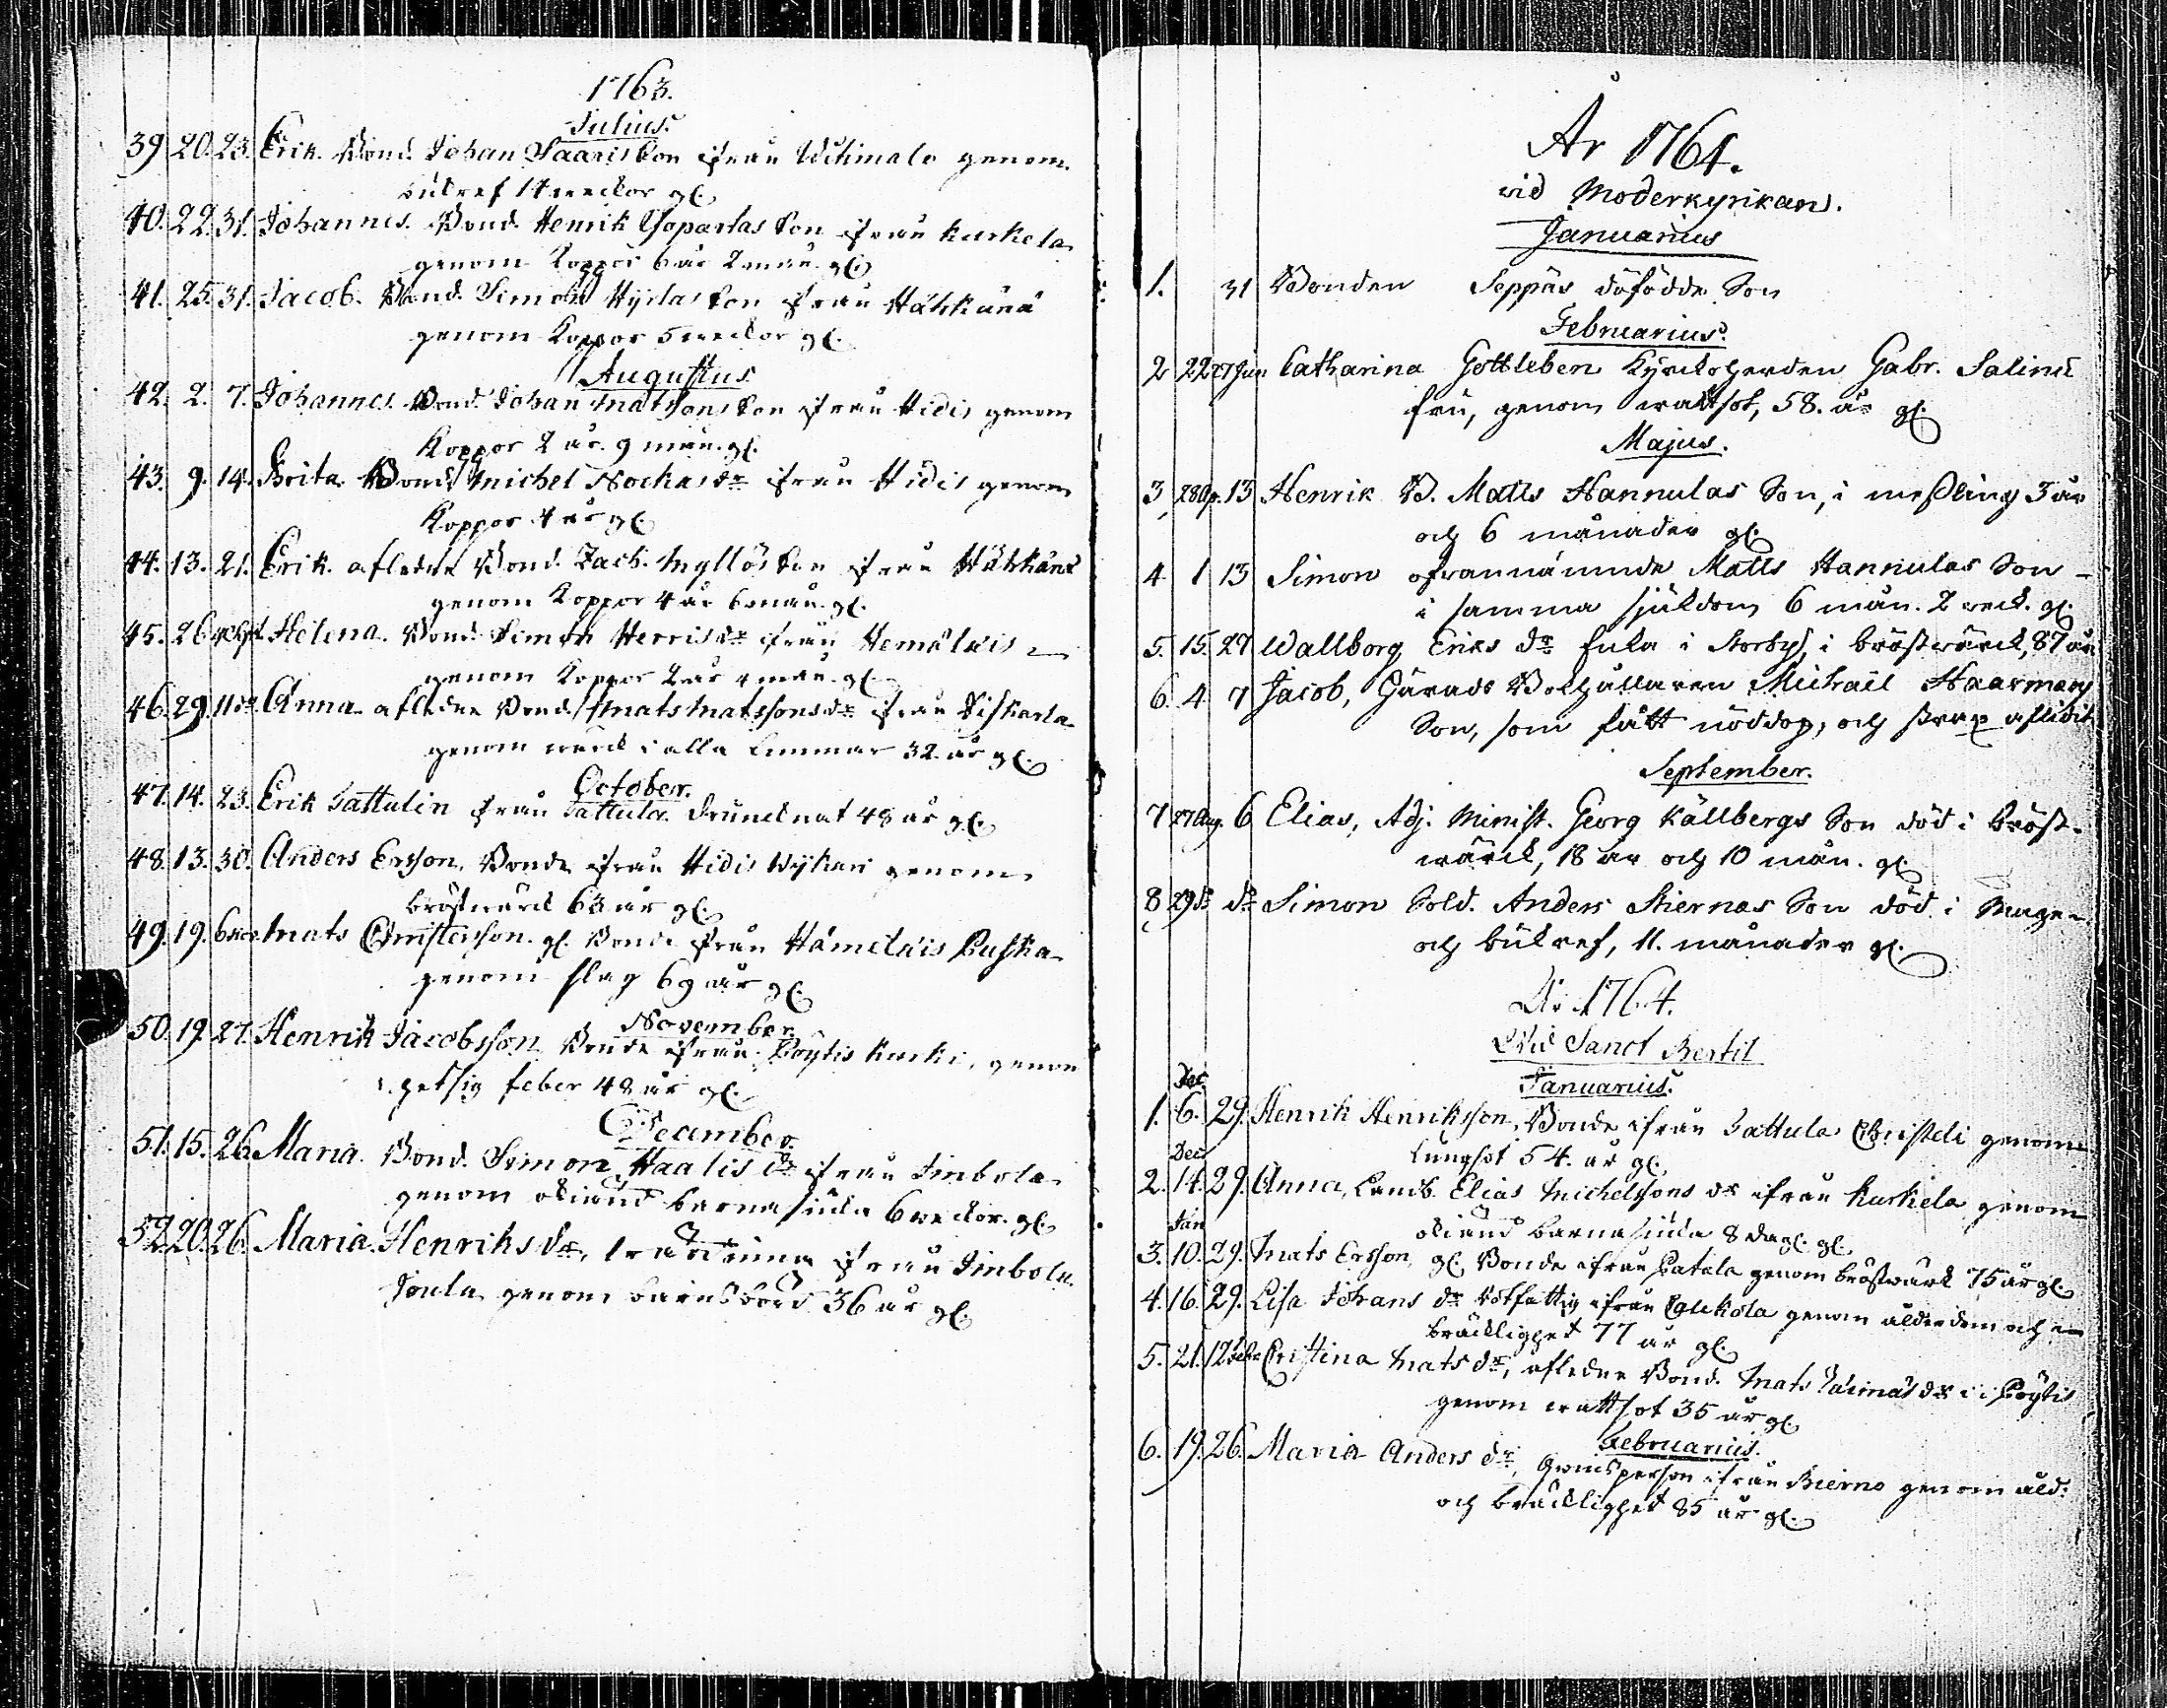 1763.
Julius.
39 20. 23. Erik. Bond. Johan Saaris Son ifrån Uckimala genom
bukref 14 weckor gl.
40. 22. 31. Johannes. Bond. Henrik Son ifrån Kurkela
genom Koppor 6 år 2 mån. gl.
41. 25. 31. Jacob. Bond. Simon Hyrlas Son ifrån
genom Koppor 5 weckor gl.
Augustus
42. 2. 7. Johannes. Bond. Johan Matssons Son ifrån Hidis genom
Koppor 2 år. 9 mån. gl.
43. 9. 14. Brita. Bond. Michel Nockas dr ifrån Hidis genom
Koppor 4 år gl.
44. 13. 21. Erik. afledne Bond. Zach. Myllös Son ifrån
genom Koppor 4 år 6 mån. gl.
45. 26 4 Sept. Helena. Bond. Simon Herris dr ifrån Hemäläis
genom Koppor 2 år 4 mån. gl.
46. 29. 11 do Anna afledne Bond. Mats Matssons dr ifrån Diskarla
genom wärck i alla Lemmar 32. år gl.
October.
47. 14. 23. Erik Sattulin ifrån Sattula drunknat 48 år gl.
48. 13. 30. Anders Ersson. Bonde ifrån Hidis Wyhari genom
bröstwärck 63 år gl.
49. 19. 6 Nov. Mats Christersson. gl. Bonde ifrån Hämeläis Puska
genom slag 69 år gl.
November.
50. 19. 27. Henrik Jacobsson Bonde ifrån Pöytis Kurki, genom
hetsig feber 48 år gl.
December.
51. 15. 26. Maria. Bond. Simon Haalis dr ifrån Inbola
genom okiänd barnasiuka 6 weckor. gl.
52. 20. 26. Maria. Henriks dr, ifrån Inbola
Joula genom barnsbörd 36 år gl.
År 1764.
vid Moderkyrkan.
Januarius
1. 31 Bonden Seppäs döfödde Son
Februarius.
2 22 27 Jan. Catharina Gottleben Kyrckoherden Gabr. Salinii
fru, genom wattsot, 58. år gl.
Majus.
3 28 Ap. 13 Henrik B. Matts Hannulas Son, i messling 3 år
och 6 månader gl.
4 1 13 Simon ofvannämnde Matts Hannulas Son
i samma sjukdom 6 mån. 2 veck. gl.
5. 15. 27 Wallborg Eriks dr Enka i Storby, i bröstwärck, 87 år
6. 4 7 Jacob, Härads Bokhållaren Michaël Haarmans
Son, som fått nöddop, och strax aflidit
September.
7 27 Aug. 6 Elias, Adj. Minist. Georg Källbergs Son död i bröst-
wärck, 18 år och 10 mån. gl.
8 29 do do Simon Sold. Anders Stiernas Son död i Mage-
och bukref, 11. månader gl.
År 1764.
Wid Sanct Bertil
Januarius.
1. Dec. 6. 29. Henrik Henriksson, Bonde ifrån Sattula Christeli genom
Lungsot 54. år gl.
2. Dec 14. 29. Anna, Landb. Elias Michelssons dr ifrån Kurkela genom
okiänd barnasiuka 8 dag. gl.
3. Jan 10. 29. Mats Ersson, gl. Bonde ifrån Patala genom bröstwärk 75 år gl.
4. 16. 29. Lisa Johans dr ifrån genom ålderdom och
bräcklighet 77 år gl.
5. 21. 12 Febr Cristina Mats dr, afledne Bond. Mats dr i Pöytis
genom wattsot 35 år gl.
Februarius.
6. 19. 26. Maria Anders dr, ifrån Bierno genom åld:
och bräcklighet 85 år gl.